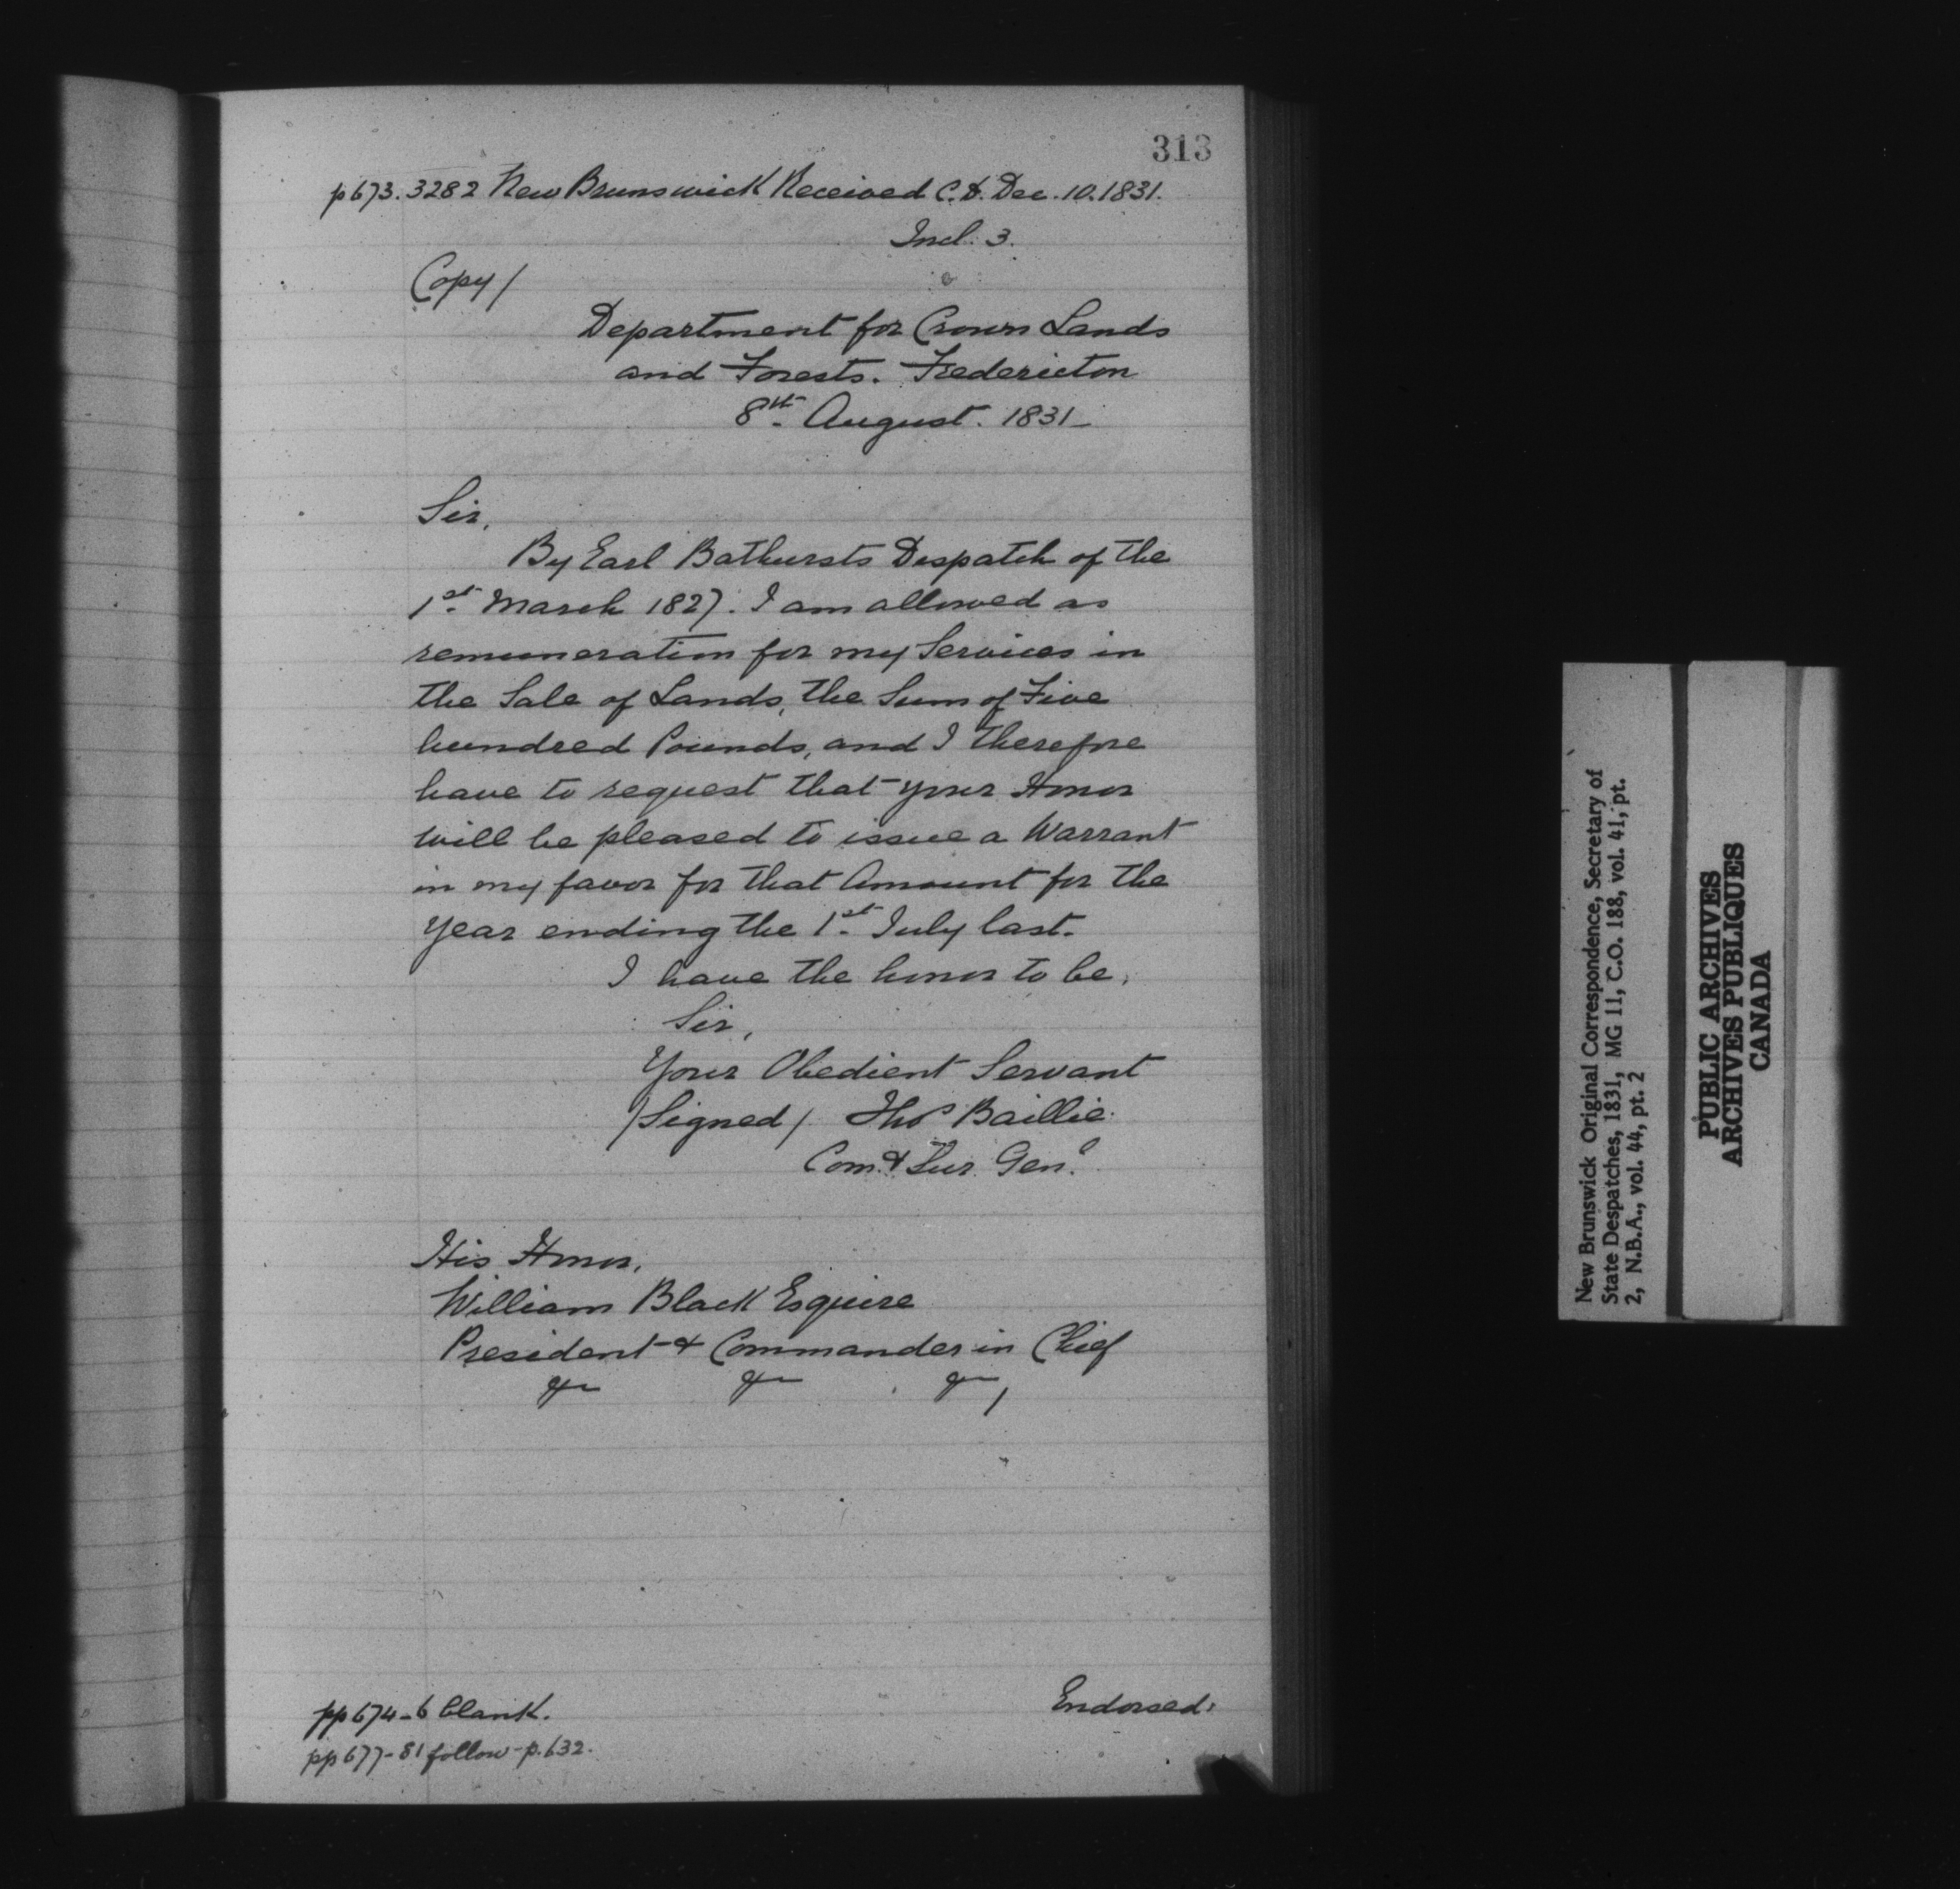 313
p673. 3282 New Brunswick Received C.D. Dec. 10. 1831.
Incl. 3.
Copy/
Department for Crown Lands
and Forests. Fredericton
8th August. 1831_
Sir,
By Earl Bathursts Despatch of the
1st March 1827. I am allowed as
remuneration for my Services in
the Sale of Lands, the Sum of Five
hundred Pounds, and I therefore
have to request that your Honor
will be pleased to issue a Warrant
in my favor for that Amount for the
Year ending the 1st July last.
I have the honor to be,
Sir,
Your Obedient Servant
/Signed/ Thos Baillie
Com. & Sur. Genl
His Honor,
William Black Esquire
President & Commander in Chief
&c &c &c/
pp 674-6 blank.
Endorsed:
pp 677-81 follow p. 632.
New Brunswick Original Correspondence, Secretary of
State Despatches, 1831, MG 11, C.O. 188, vol. 41, pt.
2, N.B.A., vol. 44, pt. 2
PUBLIC ARCHIVES
ARCHIVES PUBLIQUES
CANADA